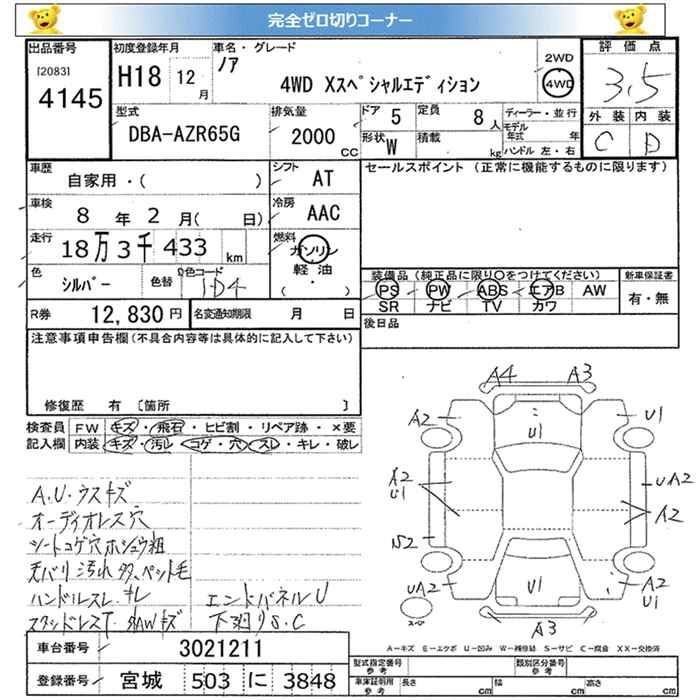 完全ゼロ切りコーナー
出品番号
[2083]
4145
初度登録年月
H18 12月
車名・グレード
ノア
4WD Xスペシャルエディション
2WD
4WD
評価点
3.5
外装 内装
C D
型式
DBA-AZR65G
排気量
2000 CC
ドア 5
定員 8人
形状 W
積載 kg
ディーラー・並行
モデル年式 年
ハンドル 左・右
車歴
自家用・( )
シフト AT
車検
8年2月( 日)
冷房 AAC
走行
18万3千433km
燃料
ガソリン
軽油
( ・ )
色
シルバー
色替
色コード
1D4
R券 12,830円
名変通知期限 月 日
セールスポイント (正常に機能するものに限ります)
装備品 (純正品に限り○をつけてください)
PS PW ABS エアB AW
SR ナビ TV カワ
新車保証書
有・無
後日品
注意事項申告欄(不具合内容等は具体的に記入して下さい)
修復歴 有 [箇所 ]
検査員記入欄
FW キズ・飛石・ヒビ割・リペア跡・×要
内装 キズ・汚レ・コゲ・穴・スレ・キレ・破レ
A.U.ウスキズ
オーディオレス穴
シートコゲ穴ホシュウ粗
天バリ汚れ多、ペット毛
ハンドルスレ・キレ
スタッドレスT・AWキズ
エンドパネルU
下廻りS.C
A4 A3
A2 U1 U1
A2 U1
UA2
A2
S2
UA2 U1 A2 U1
A3
A-キズ E-エクボ U-凹み W-補修跡 S-サビ C-腐食 XX-交換済
車台番号 3021211
登録番号 宮城 503 に 3848
型式指定番号 参考
類別区分番号 参考
車庫証明用 参考
長さ cm
幅 cm
高さ cm